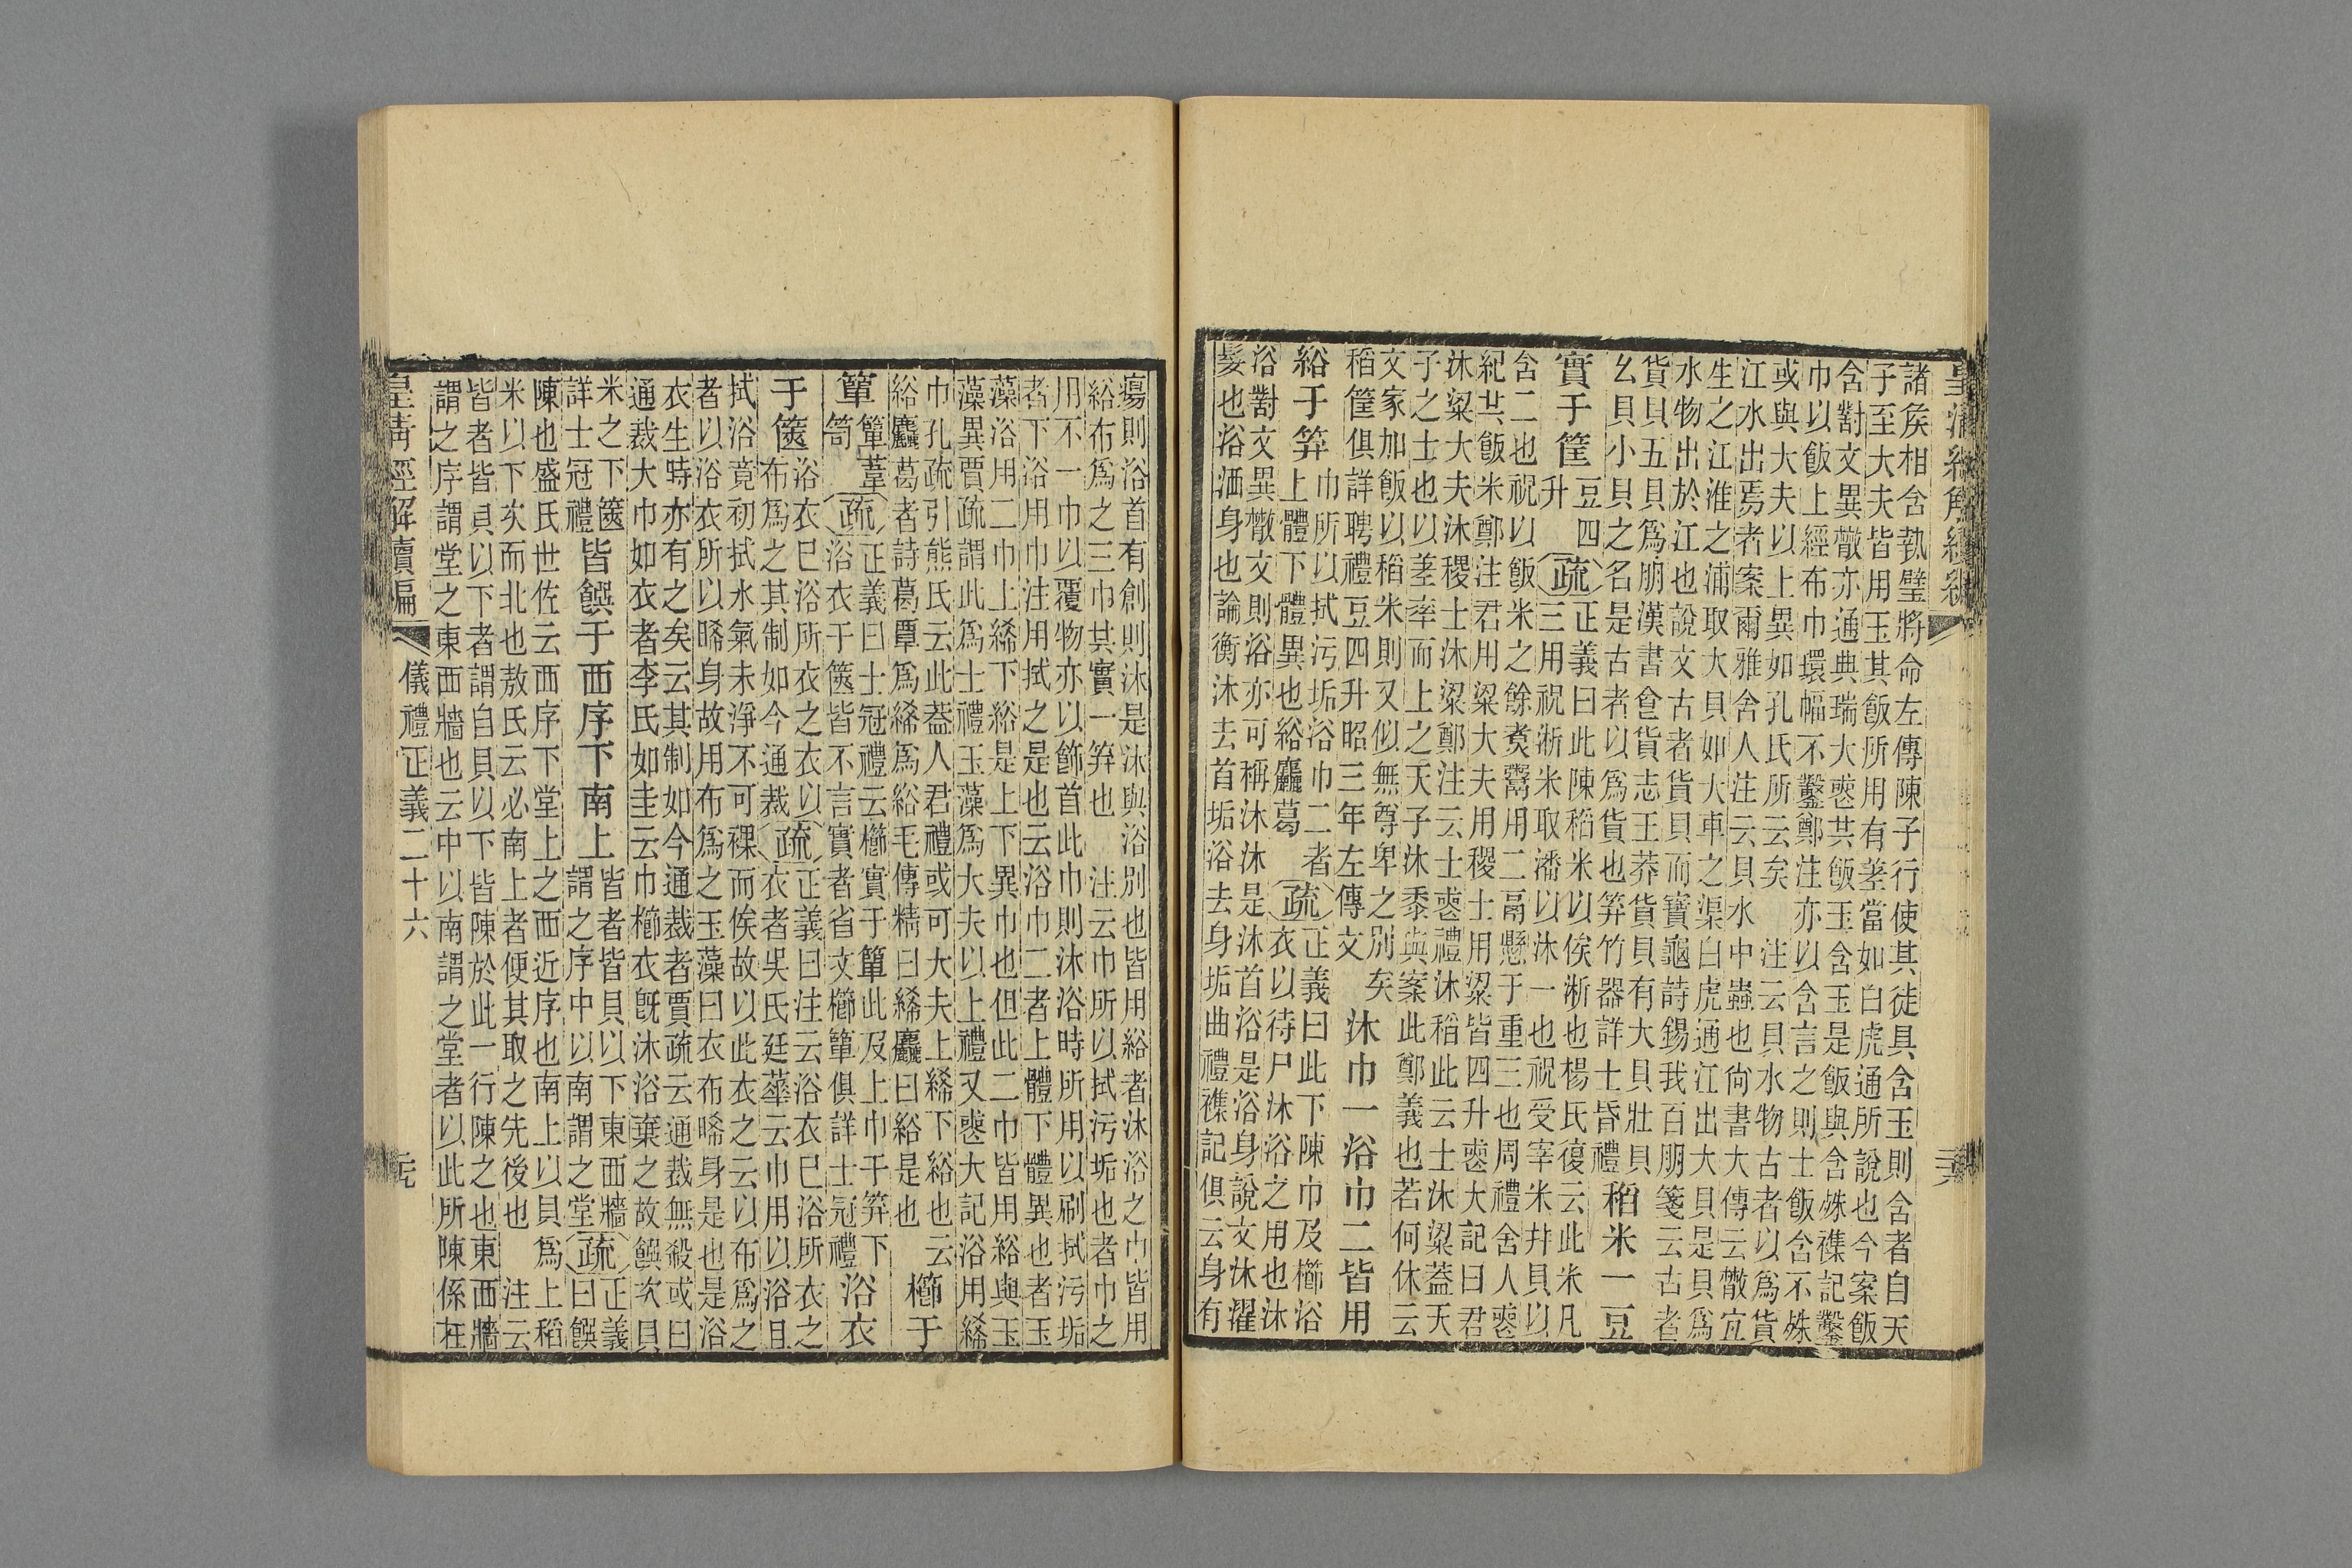 諸矦相含執璧將命左傳陳子行使其徒具含玉則含者自天
子至大夫皆用玉其飯所用有差當如白虎通所說也今案飯
含對文異㪚亦通典瑞大喪共飯玉含玉是飯與含殊襍記鑿
巾以飯上經布巾環幅不鑿鄭注亦以含言之則士飯含不殊
或與大夫以上異如孔氏所云矣　注云貝水物古者以爲貨
江水出焉者案爾雅舍人注云貝水中蟲也尙書大傳云㪚宜
生之江淮之浦取大貝如大車之渠白虎通江出大貝是貝爲
水物出於江也說文古者貨貝而寶龜詩錫我百朋箋云古者
貨貝五貝爲朋漢書食貨志王莽貨貝有大貝壯貝
幺貝小貝之名是古者以爲貨也笲竹器詳士昏禮
稻米一豆
實于筐
豆四
升
疏
正義曰此陳稻米以俟淅也楊氏復云此米凡
三用祝淅米取潘以沐一也祝受宰米幷貝以
含二也祝以飯米之餘煑鬻用二鬲懸于重三也周禮舍人喪
紀共飯米鄭注君用粱大夫用稷士用粱皆四升喪大記曰君
沐粱大夫沐稷士沐粱鄭注云士喪禮沐稻此云士沐粱蓋天
子之士也以差率而上之天子沐黍與案此鄭義也若何休云
文家加飯以稻米則又似無尊卑之別矣
稻筐俱詳聘禮豆四升昭三年左傳文
沐巾一浴巾二皆用
綌于笲
巾所以拭污垢浴巾二者
上體下體異也綌麤葛
疏
正義曰此下陳巾及櫛浴
衣以待尸沐浴之用也沐
浴對文異㪚文則浴亦可稱沐沐是沐首浴是浴身說文沐濯
髮也浴洒身也論衡沐去首垢浴去身垢曲禮襍記俱云身有
皇淸經解續編
瘍則浴首有創則沐是沐與浴別也皆用綌者沐浴之巾皆用
綌布爲之三巾其實一笲也　注云巾所以拭污垢也者巾之
用不一巾以覆物亦以飾首此巾則沐浴時所用以刷拭污垢
者下浴用巾注用拭之是也云浴巾二者上體下體異也者玉
藻浴用二巾上絺下綌是上下異巾也但此二巾皆用綌與玉
藻異賈疏謂此爲士禮玉藻爲大夫以上禮又喪大記浴用絺
巾孔疏引熊氏云此蓋人君禮或可大夫上絺下綌也　云
綌麤葛者詩葛覃爲絺爲綌毛傳精曰絺麤曰綌是也
櫛于
簞
簞葦
笥
疏
正義曰士冠禮云櫛實于簞此及上巾于笲下
浴衣于篋皆不言實者省文櫛簞俱詳士冠禮
浴衣
于篋
浴衣已浴所衣之衣以
布爲之其制如今通裁
疏
正義曰注云浴衣已浴所衣之
衣者吳氏廷華云巾用以浴且
拭浴竟初拭水氣未淨不可裸而俟故以此衣之云以布爲之
者以浴衣所以晞身故用布爲之玉藻曰衣布晞身是也是浴
衣生時亦有之矣云其制如今通裁者賈疏云通裁無殺或曰
通裁大巾如衣者李氏如圭云巾櫛衣旣沐浴棄之故饌次貝
米之下篋
詳士冠禮
皆饌于西序下南上
皆者皆貝以下東西牆
謂之序中以南謂之堂
疏
正義
曰饌
陳也盛氏世佐云西序下堂上之西近序也南上以貝爲上稻
米以下次而北也敖氏云必南上者便其取之先後也　注云
皆者皆貝以下者謂自貝以下皆陳於此一行陳之也東西牆
謂之序謂堂之東西牆也云中以南謂之堂者以此所陳係在
皇淸經解續編
儀禮正義二十六